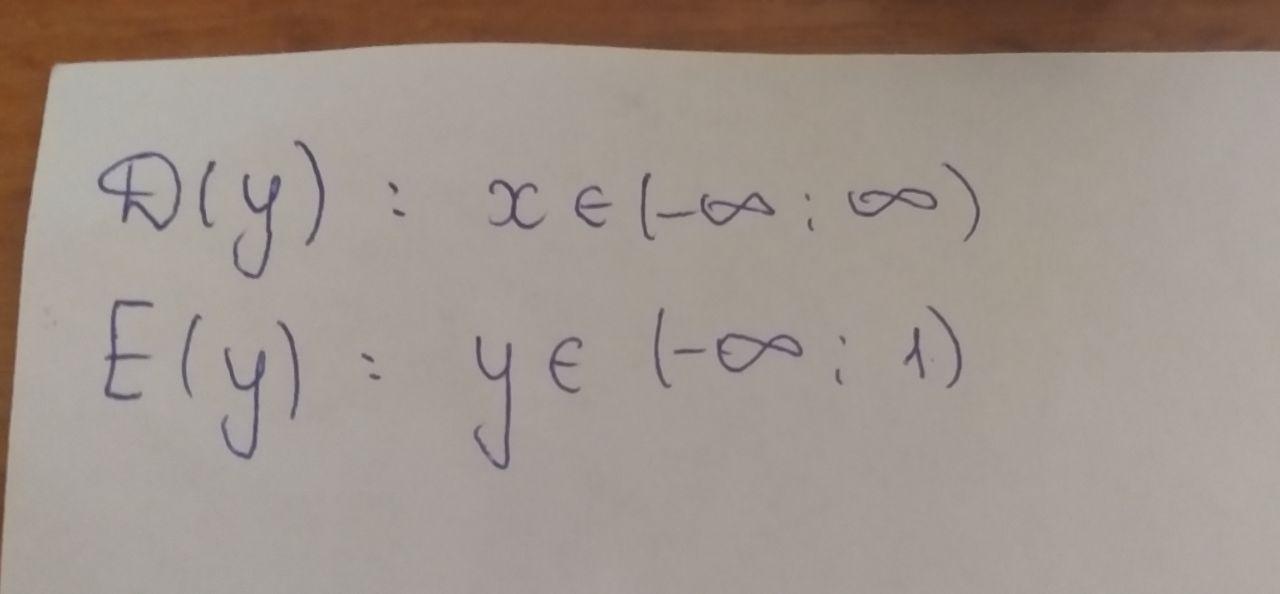 D(y) : x ∈ (-∞ ; ∞)
E(y) : y ∈ (-∞ ; 1)